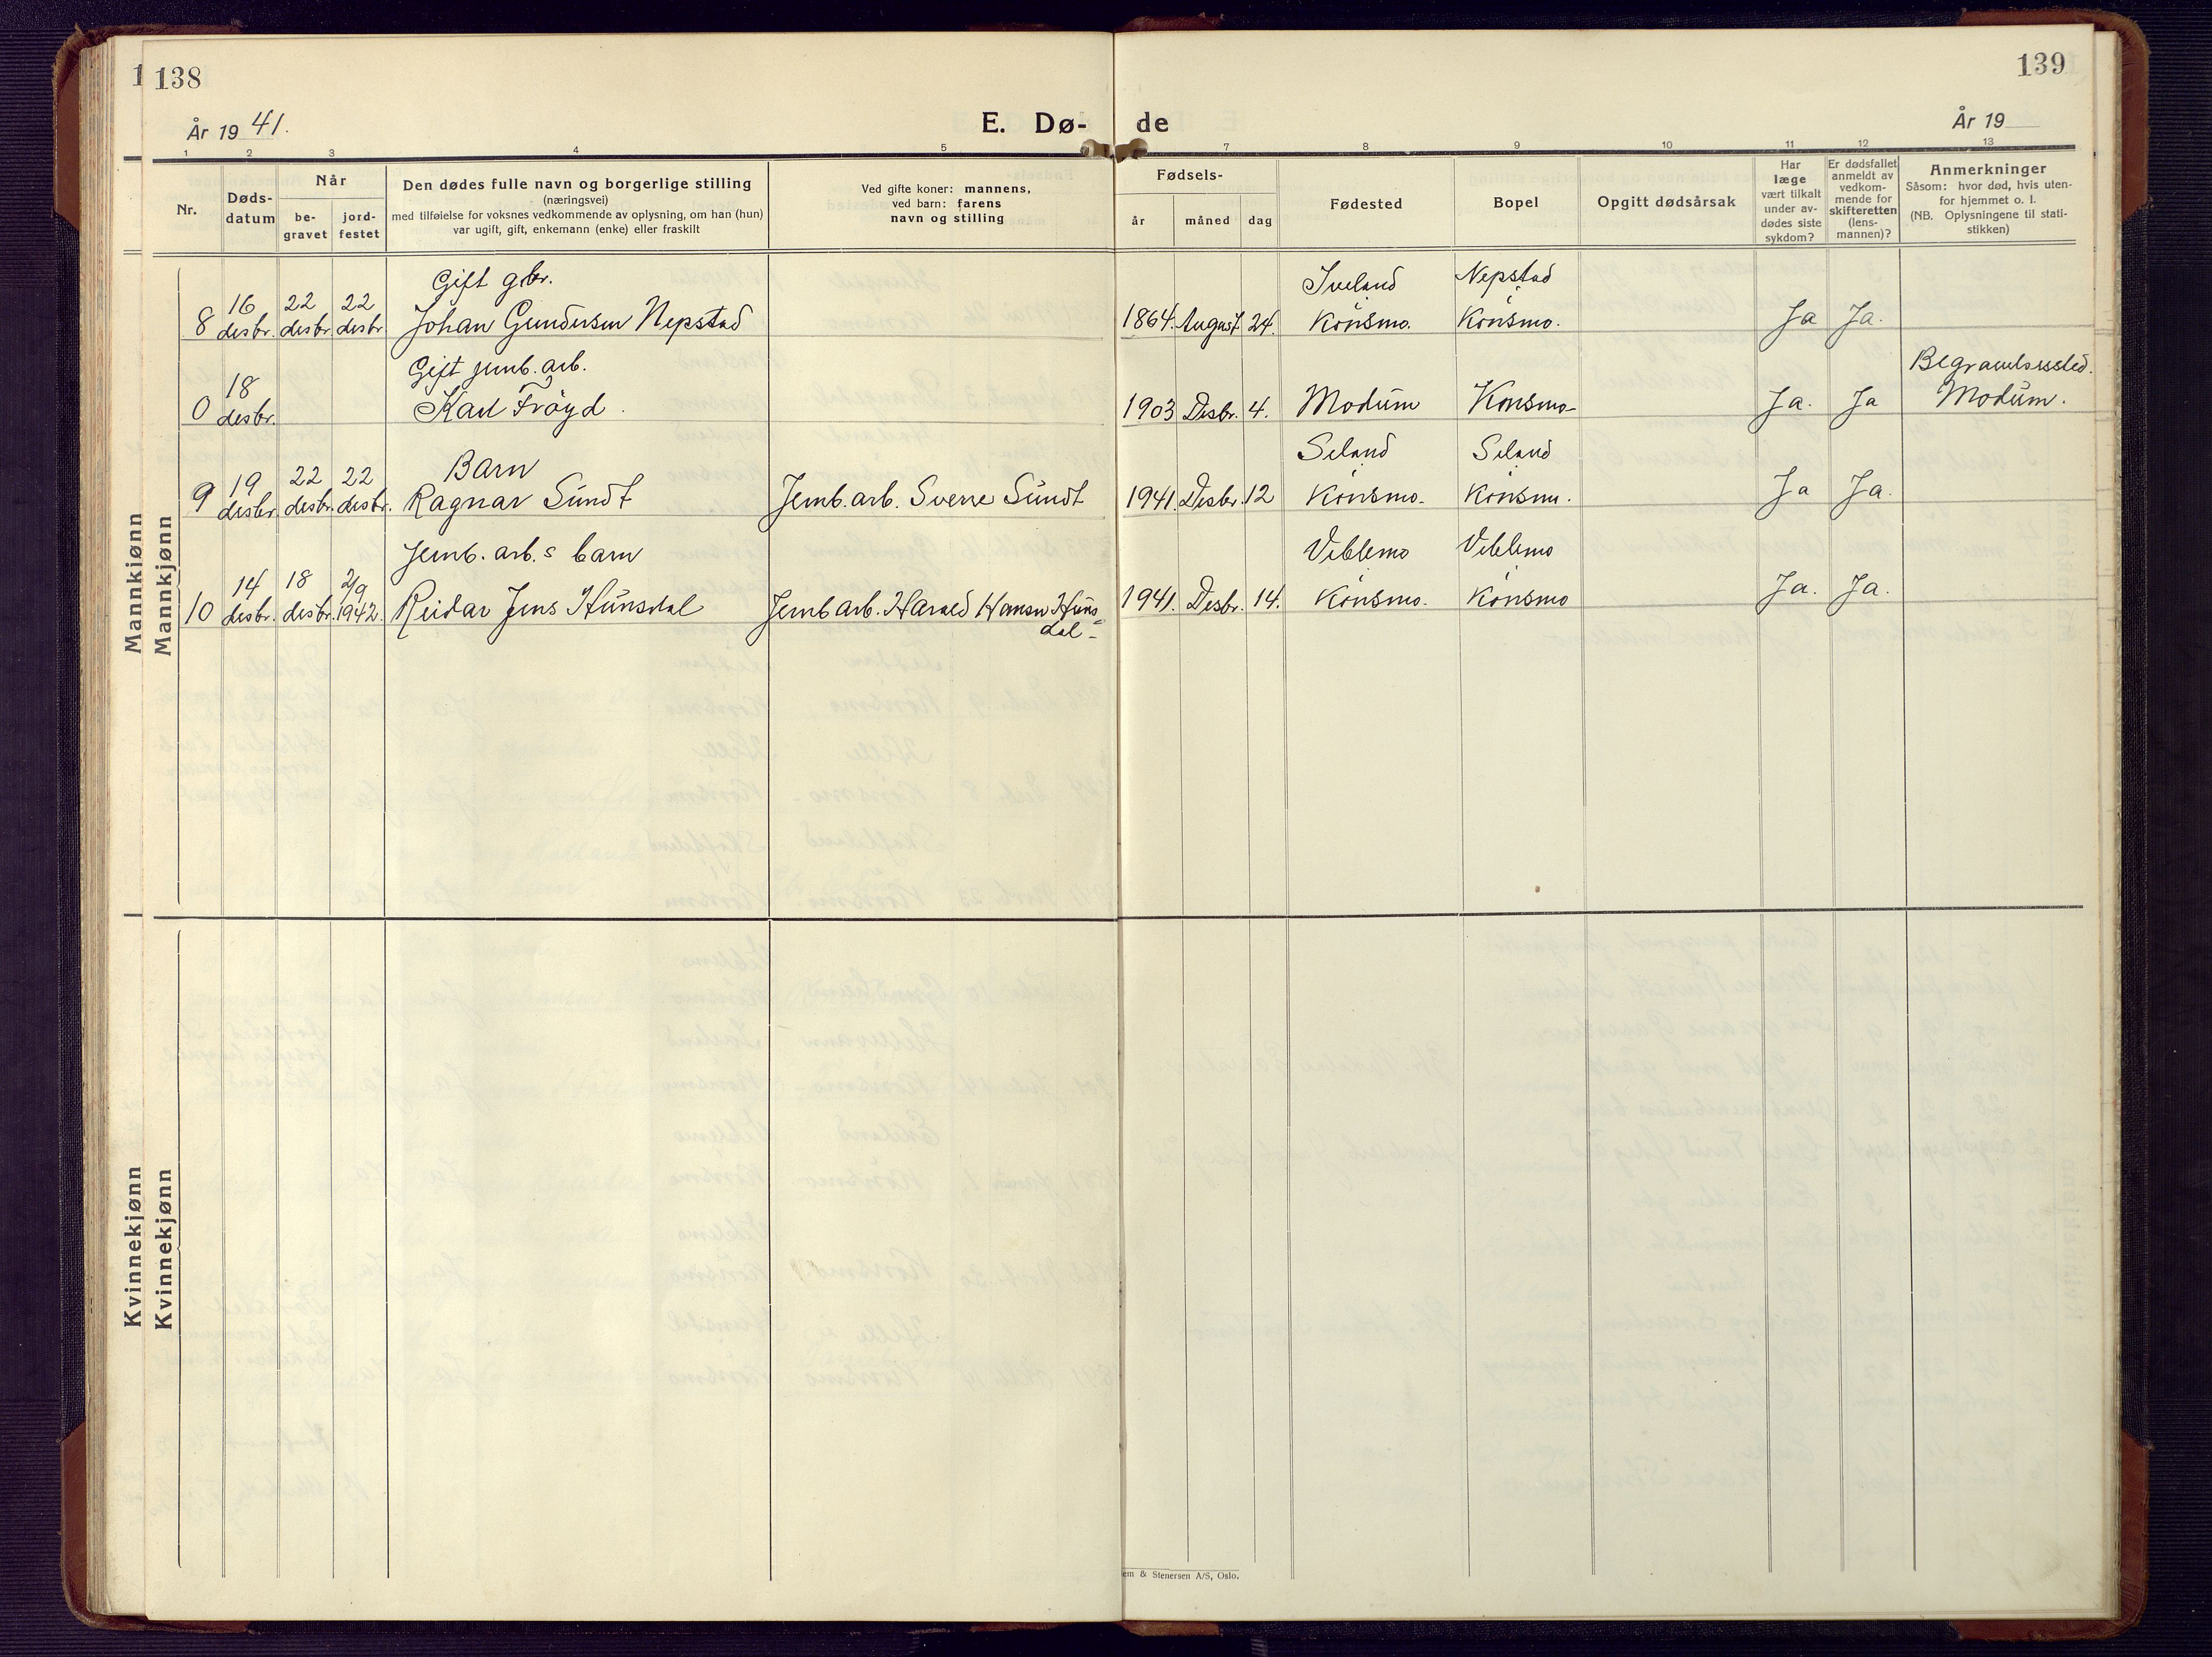 138
År 1941.
E. Dø-
1 2 3 4 5
Nr.
Døds-
datum
Når
be-
gravet
jord-
festet
Den dødes fulle navn og borgerlige stilling
(næringsvei)
med tilføielse for voksnes vedkommende av oplysning, om han (hun)
var ugift, gift, enkemann (enke) eller fraskilt
Ved gifte koner: mannens,
ved barn: farens
navn og stilling
139
År 19
de
7 8 9 10 11 12 13
Fødsels-
år måned dag
Fødested
Bopel
Opgitt dødsårsak
Har
læge
vært tilkalt
under av-
dødes siste
sykdom?
Er dødsfallet
anmeldt av
vedkom-
mende for
skifteretten
(lens-
mannen)?
Anmerkninger
Såsom: hvor død, hvis uten-
for hjemmet o. l.
(NB. Oplysningene til stati-
stikken)
Mannkjønn
Mannkjønn
Gift gbr. Iveland Nepstad
16 22 22
8 desbr. desbr. desbr. Johan Gundersen Nepstad 1864. August. 24. Konsmo. Konsmo. Ja Ja.
Gift jernb. arb. Begravelsessted.
18
0 desbr. Karl Frøyd. 1903 Desbr. 4. Modum Konsmo Ja. Ja Modum.
Barn Seland Seland
19 22 22
9 desbr. desbr. desbr. Ragnar Sundt Jernb. arb. Sverre Sundt 1941. Desbr. 12 Konsmo. Konsmo. Ja Ja.
Jernb. arb.s barn Viblemo Viblemo
14 18 2/9
10 desbr. desbr. 1942. Reidar Jens Hunsdal Jernb arb. Harald Hansen Huns
dal 1941. Desbr. 14. Konsmo. Konsmo Ja. Ja.
Kvinnekjønn
Kvinnekjønn
em & Stenersen A/S, Oslo.